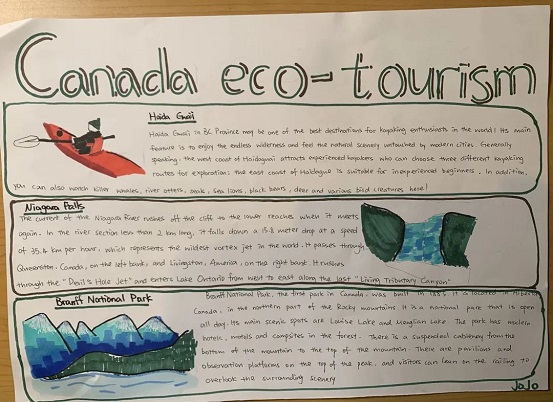 Canada eco-tourism
Haida Gwaii
Haida Gwaii in BC Province may be one of the best destinations for kayaking enthusiasts in the world! Its main
feature is to enjoy the endless wilderness and feel the natural scenery untouched by modern cities. Generally
speaking, the west coast of Haidagwaii attracts experienced kayakers who can choose three different kayaking
routes for exploration; the east coast of Haidague is suitable for inexperienced beginners. In addition,
you can also watch killer whales, river otters, seals, sea lions, black bears, deer and various bird creatures here!
Niagara Falls
The current of the Niagara River rushes off the cliff to the lower reaches when it meets
again. In the river section less than 2 km long, it falls down a 15.8 meter drop at a speed
of 35.4 km per hour, which represents the wildest vortex jet in the world. It passes through
Queenston, Canada, on the left bank, and Livingston, America, on the right bank. It rushes
through the "Devil's Hole Jet" and enters Lake Ontario from west to east along the last "Living Tributary Canyon"
Branff National Park
Branff National Park, the first park in Canada, was built in 1885. It is located in Alberta
Canada, in the northern part of the Rocky mountains. It is a national park that is open
all day. Its main scenic spots are Louise Lake and Menglian Lake. The park has modern
hotels, motels and campsites in the forest. There is a suspended cableway from the
bottom of the mountain to the top of the mountain. There are pavilions and
observation platforms on the top of the peak, and visitors can lean on the railing to
overlook the surrounding scenery
JoJo